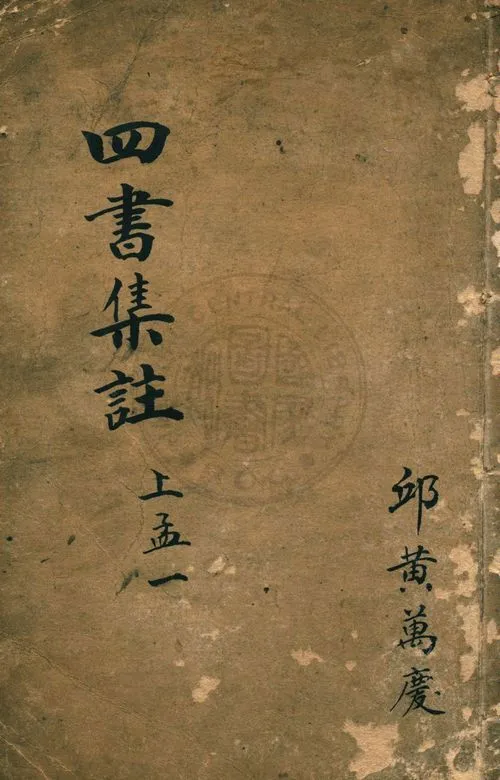 邱黄萬慶
四書集註
上孟一